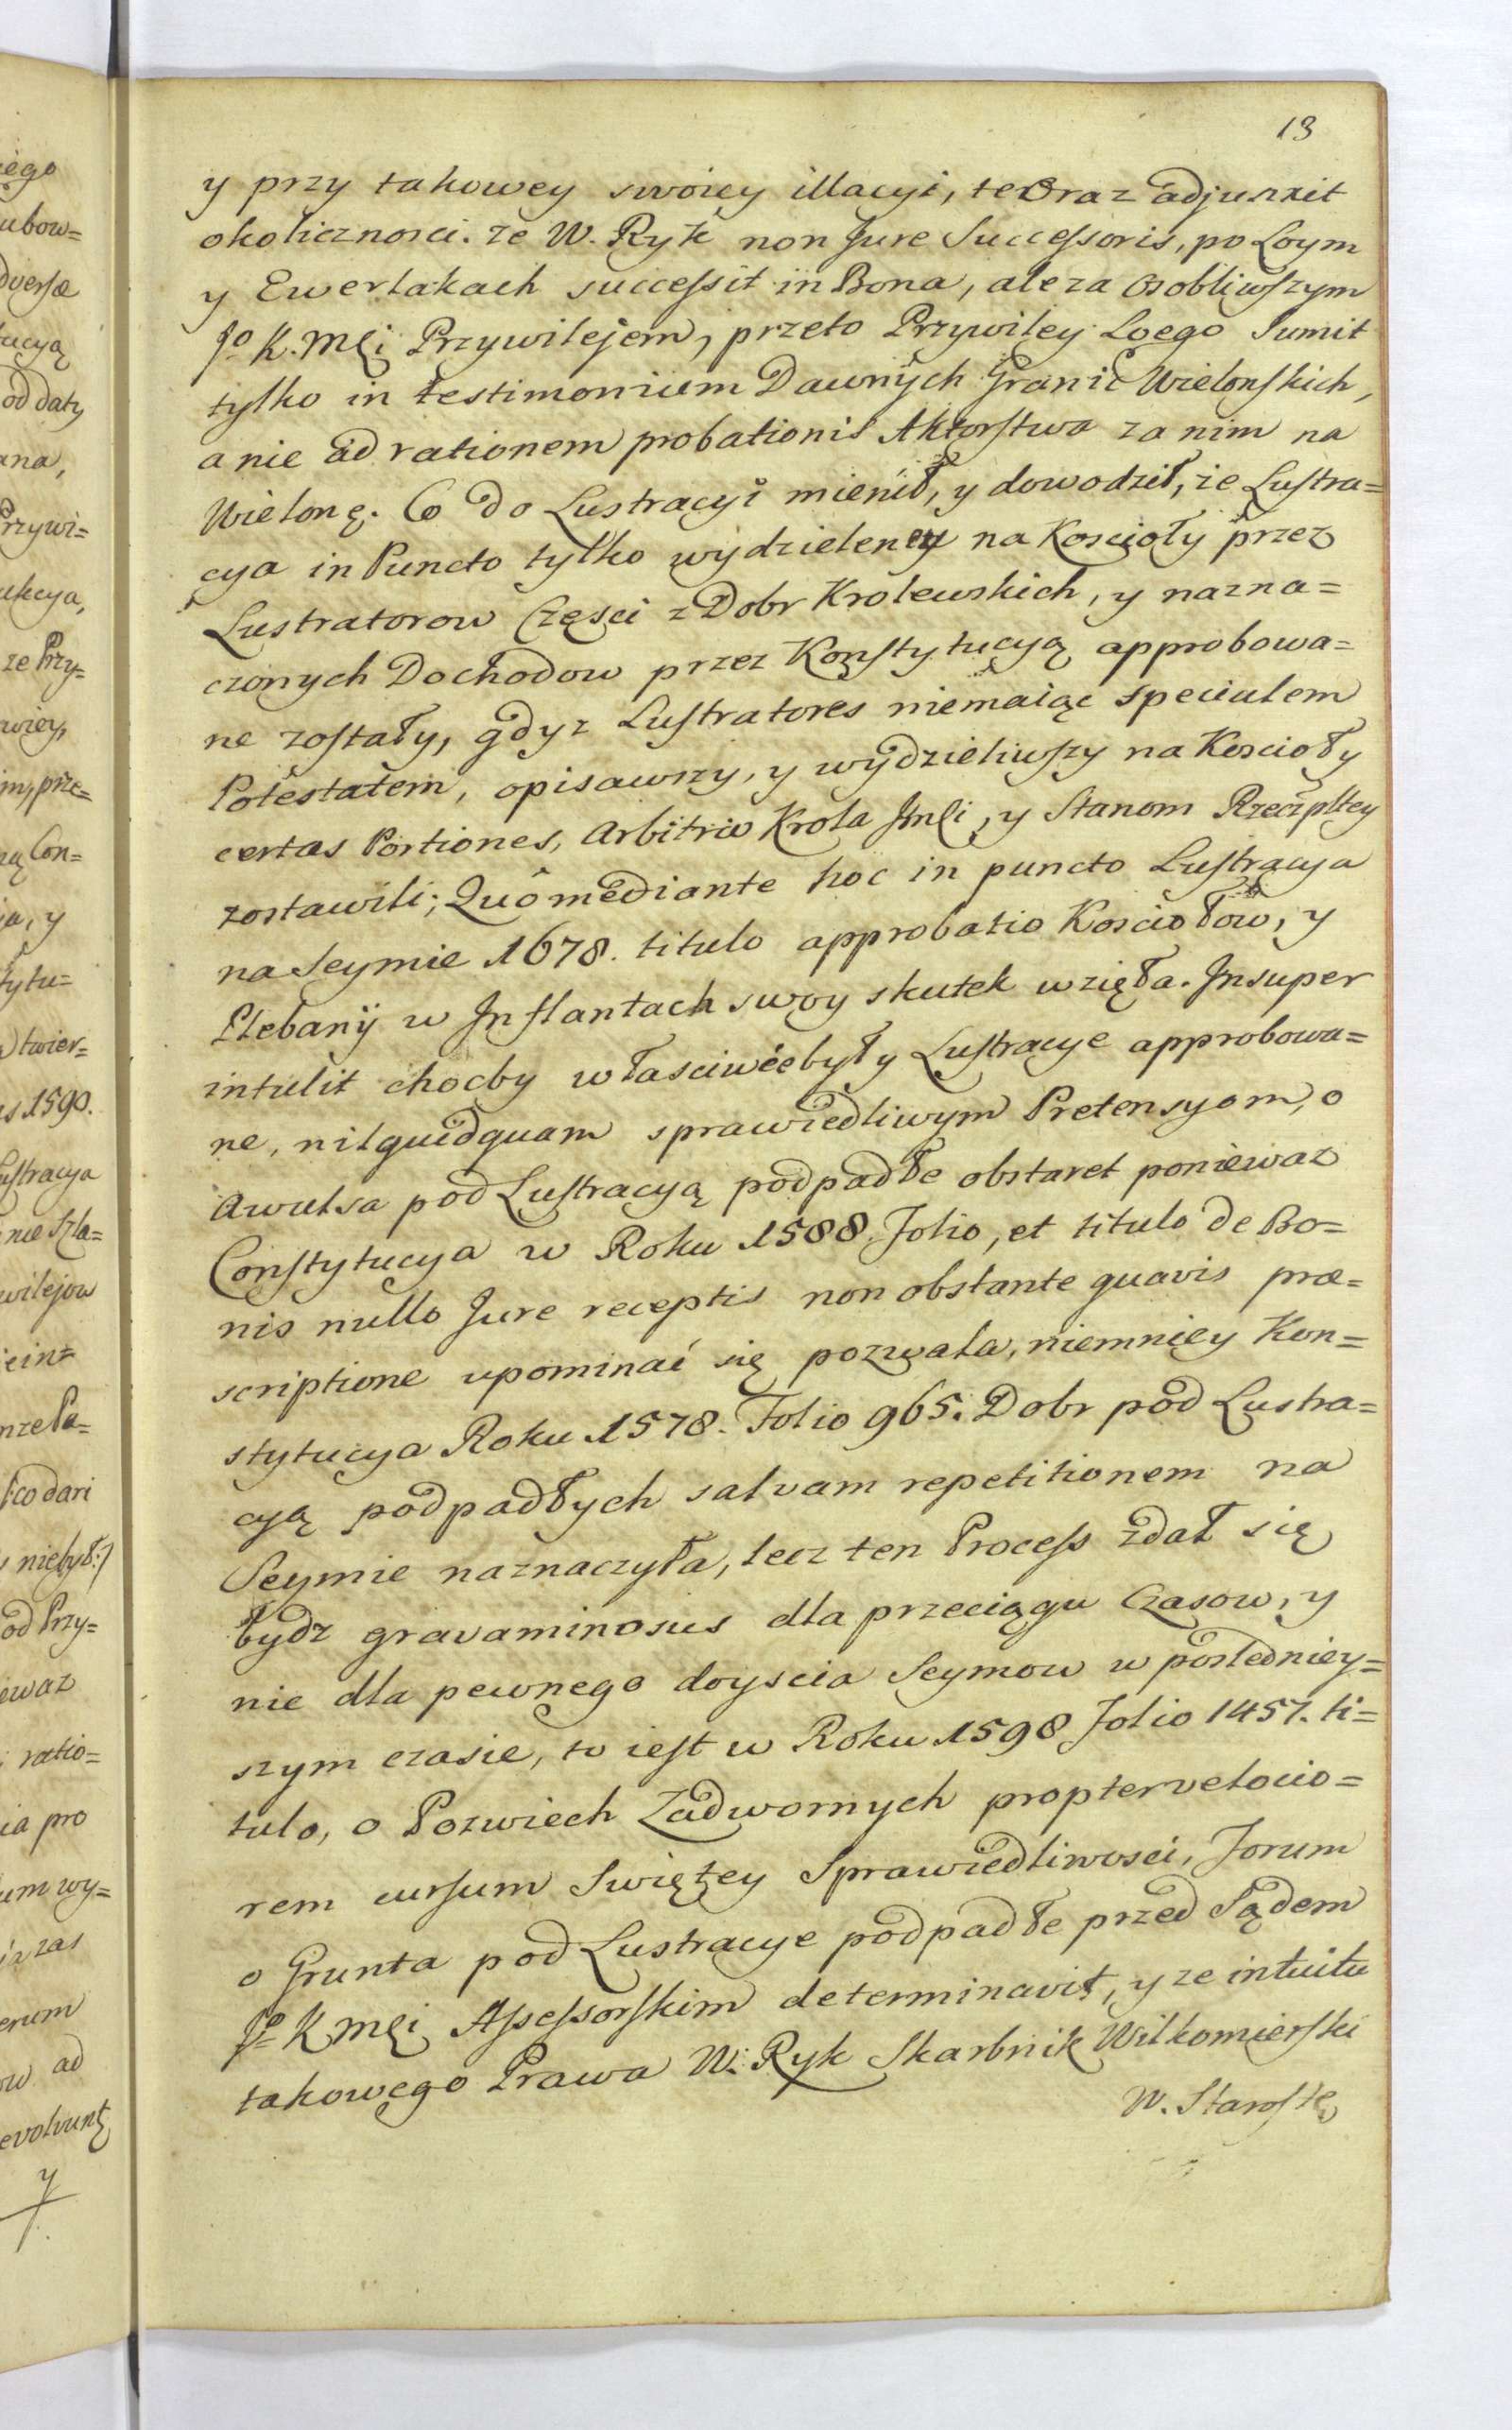 13
y przy takowey swoiey illacyi, teoraz adjunxit
okolicznosci. ze W. Ryk non Jure Successoris, po Loym
y Ewertakach successit in Bona, ale za osobliwszym
Jo K. Mci Przywilejem, przeto Przywiley Loego Sumit
tylko in testimonium Dawnych Granic Wielonskich,
a nie ad rationem probationis Aktorstwa za nim na
Wielonę. Co Do Lustracyi mienił, y dowodził, że Lustra=
cya in Puncto tylko wydzieleney na Kościoły przez
Lustratorow Części z Dobr Krolewskich, y nazna=
czonych Dochodow przez Konstytucyą approbowa=
ne zostały, gdyz Lustratores niemaiąc specialem
Potestatem, opisawszy, y wydzieliwszy na Koscioły
certas Portiones, Arbitrio Krola Jmci, y Stanom Rzeczpltey
zostawili; Quô mediante hoc in puncto Lustracya
na Seymie 1678. titulo approbatio Kosciołow, y
Plebanij w Inflantach swoy skutek wzięła. Insuper
intulit chocby własciwie były Lustracye approbowa=
ne, nilquidquam sprawiedliwym Pretensyom, o
Awulsa pod Lustracyą podpadłe obstaret poniewaz
Constytucya w Roku 1588. Folio, et titulo de Bo=
nis nullo Jure receptis non obstante quavis præ=
scriptione upominać się pozwala, niemniey Kon=
stytucya Roku 1578. Folio 965. Dobr pod Lustra=
cyą podpadłych salvam repetitionem na
Seymie naznaczyła, lecz ten Process zdał się
bydz gravaminosus dla przeciągu Czasow, y
nie dla pewnego doyscia Seymow w posledniey=
szym czasie, to iest w Roku 1598 Folio 1457. ti=
tulo, o Pozwiech Zadwornych propter velocio=
rem cursum Swiętey Sprawiedliwosci, Forum
o Grunta pod Lustracye podpadłe przed Sądem
Jo K Mci Assessorskim determinavit, y ze intuitu
takowego Prawa W. Ryk Skarbnik Wilkomierski
W. Starostę